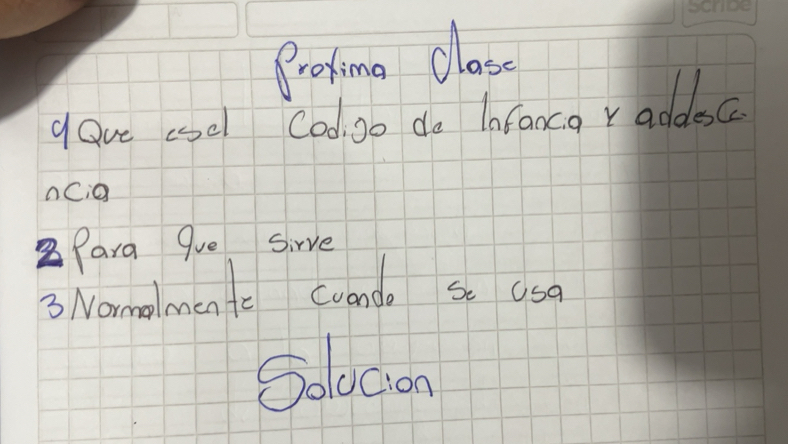 Scribe
Proxima Clase
1 Que es el Codigo de Infancia y adolesce
ncia
2 Para que sirve
3 Normalmente cuando se usa
Solucion